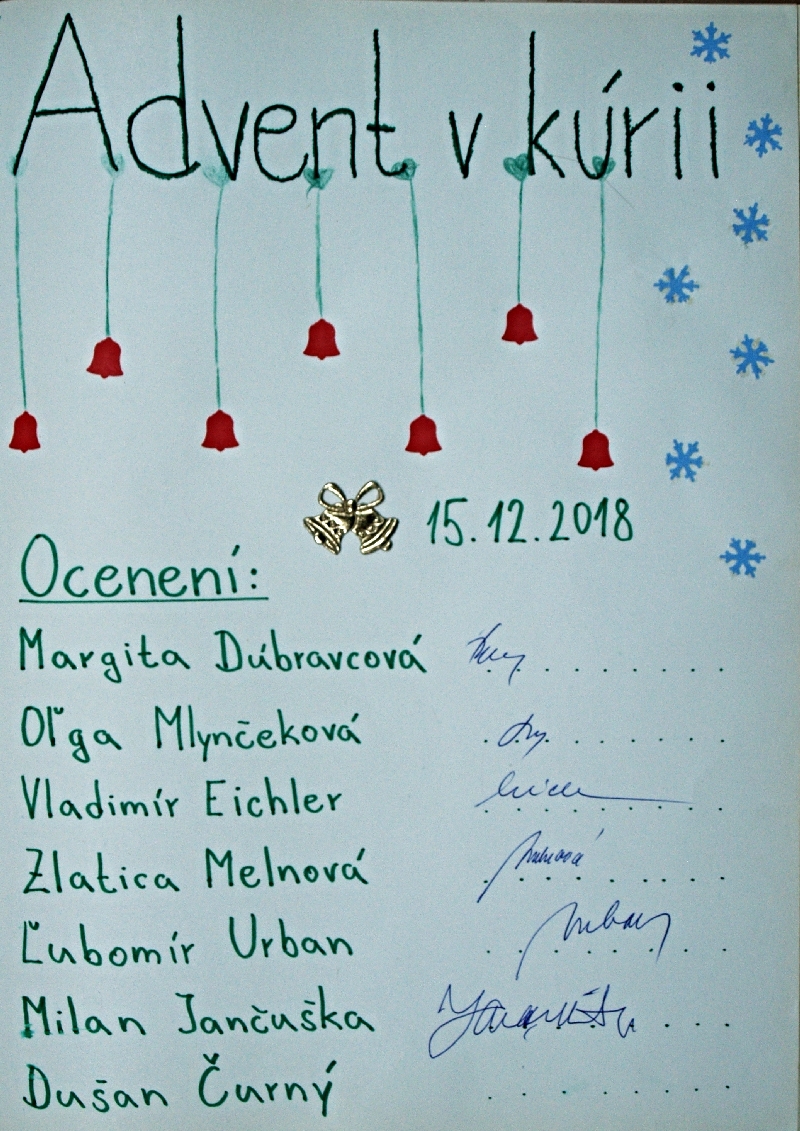 Advent v kúrii
15.12.2018
Ocenení:
Margita Dúbravcová
Oľga Mlynčeková
Vladimír Eichler
Zlatica Melnová
Ľubomír Urban
Milan Jančuška
Dušan Čurný